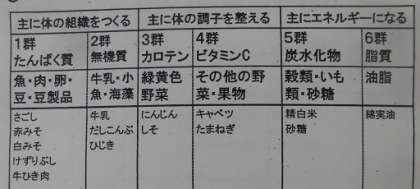 主に体の組織をつくる 主に体の調子を整える 主にエネルギーになる
1群 2群 3群 4群 5群 6群
たんぱく質 無機質 カロテン ビタミンC 炭水化物 脂質
魚・肉・卵・ 牛乳・小 緑黄色 その他の野 穀類・いも 油脂
豆・豆製品 魚・海藻 野菜 菜・果物 類・砂糖
さごし 牛乳 にんじん キャベツ 精白米 綿実油
赤みそ だしこんぶ しそ たまねぎ 砂糖
白みそ ひじき
けずりぶし
牛ひき肉